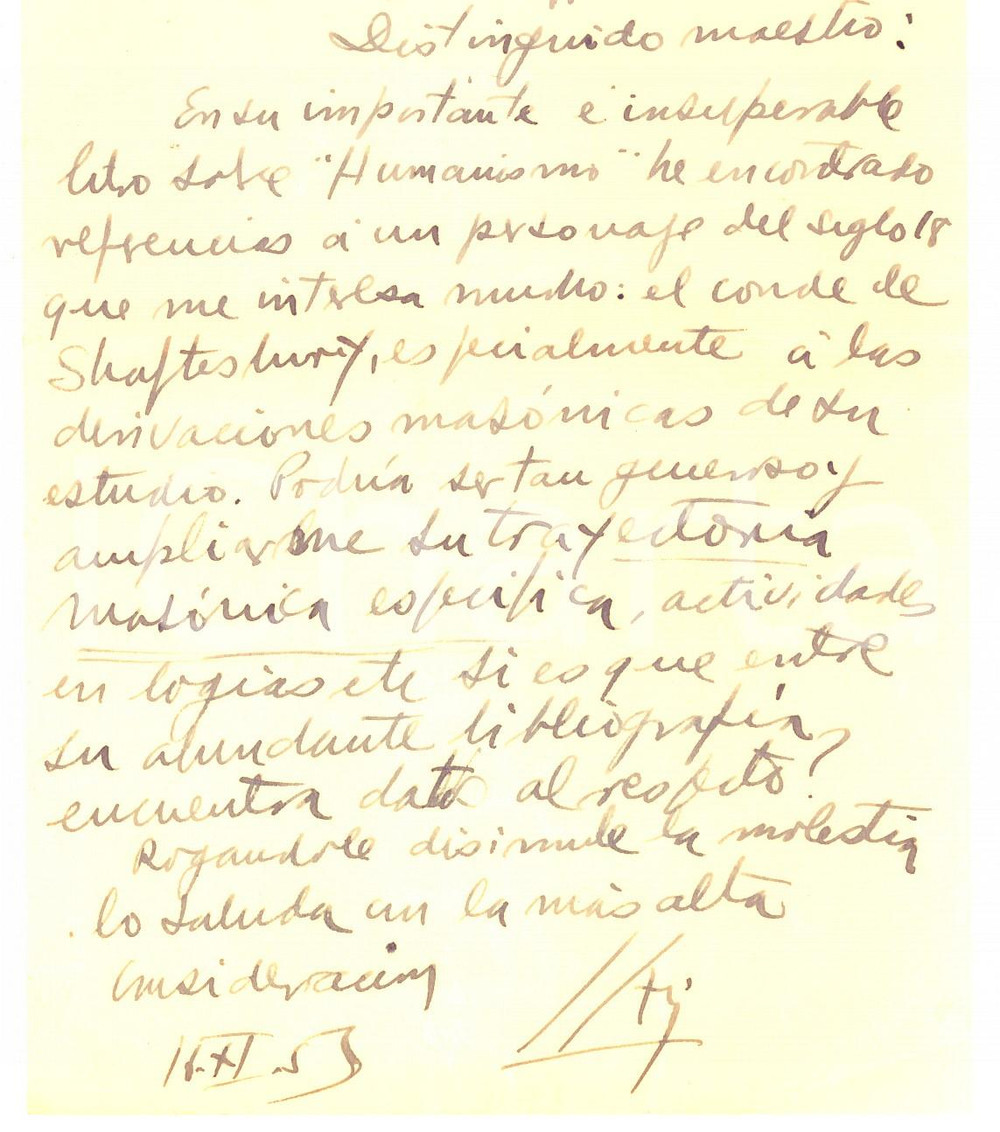 Distinguido maestro:
En su importante é insuperable
libro sobre "Humanismo" he encontrado
referencias á un personaje del siglo 18
que me interesa mucho: el conde de
Shaftesbury, especialmente á las
derivaciones masónicas de su
estudio. Podría ser tan generoso y
ampliarme su trayectoria
masónica específica, actividades
en logias etc si es que entre
su abundante bibliografía,
encuentra datos al respecto?
Rogandole disimule la molestia
lo saluda con la más alta
consideración
XI.53